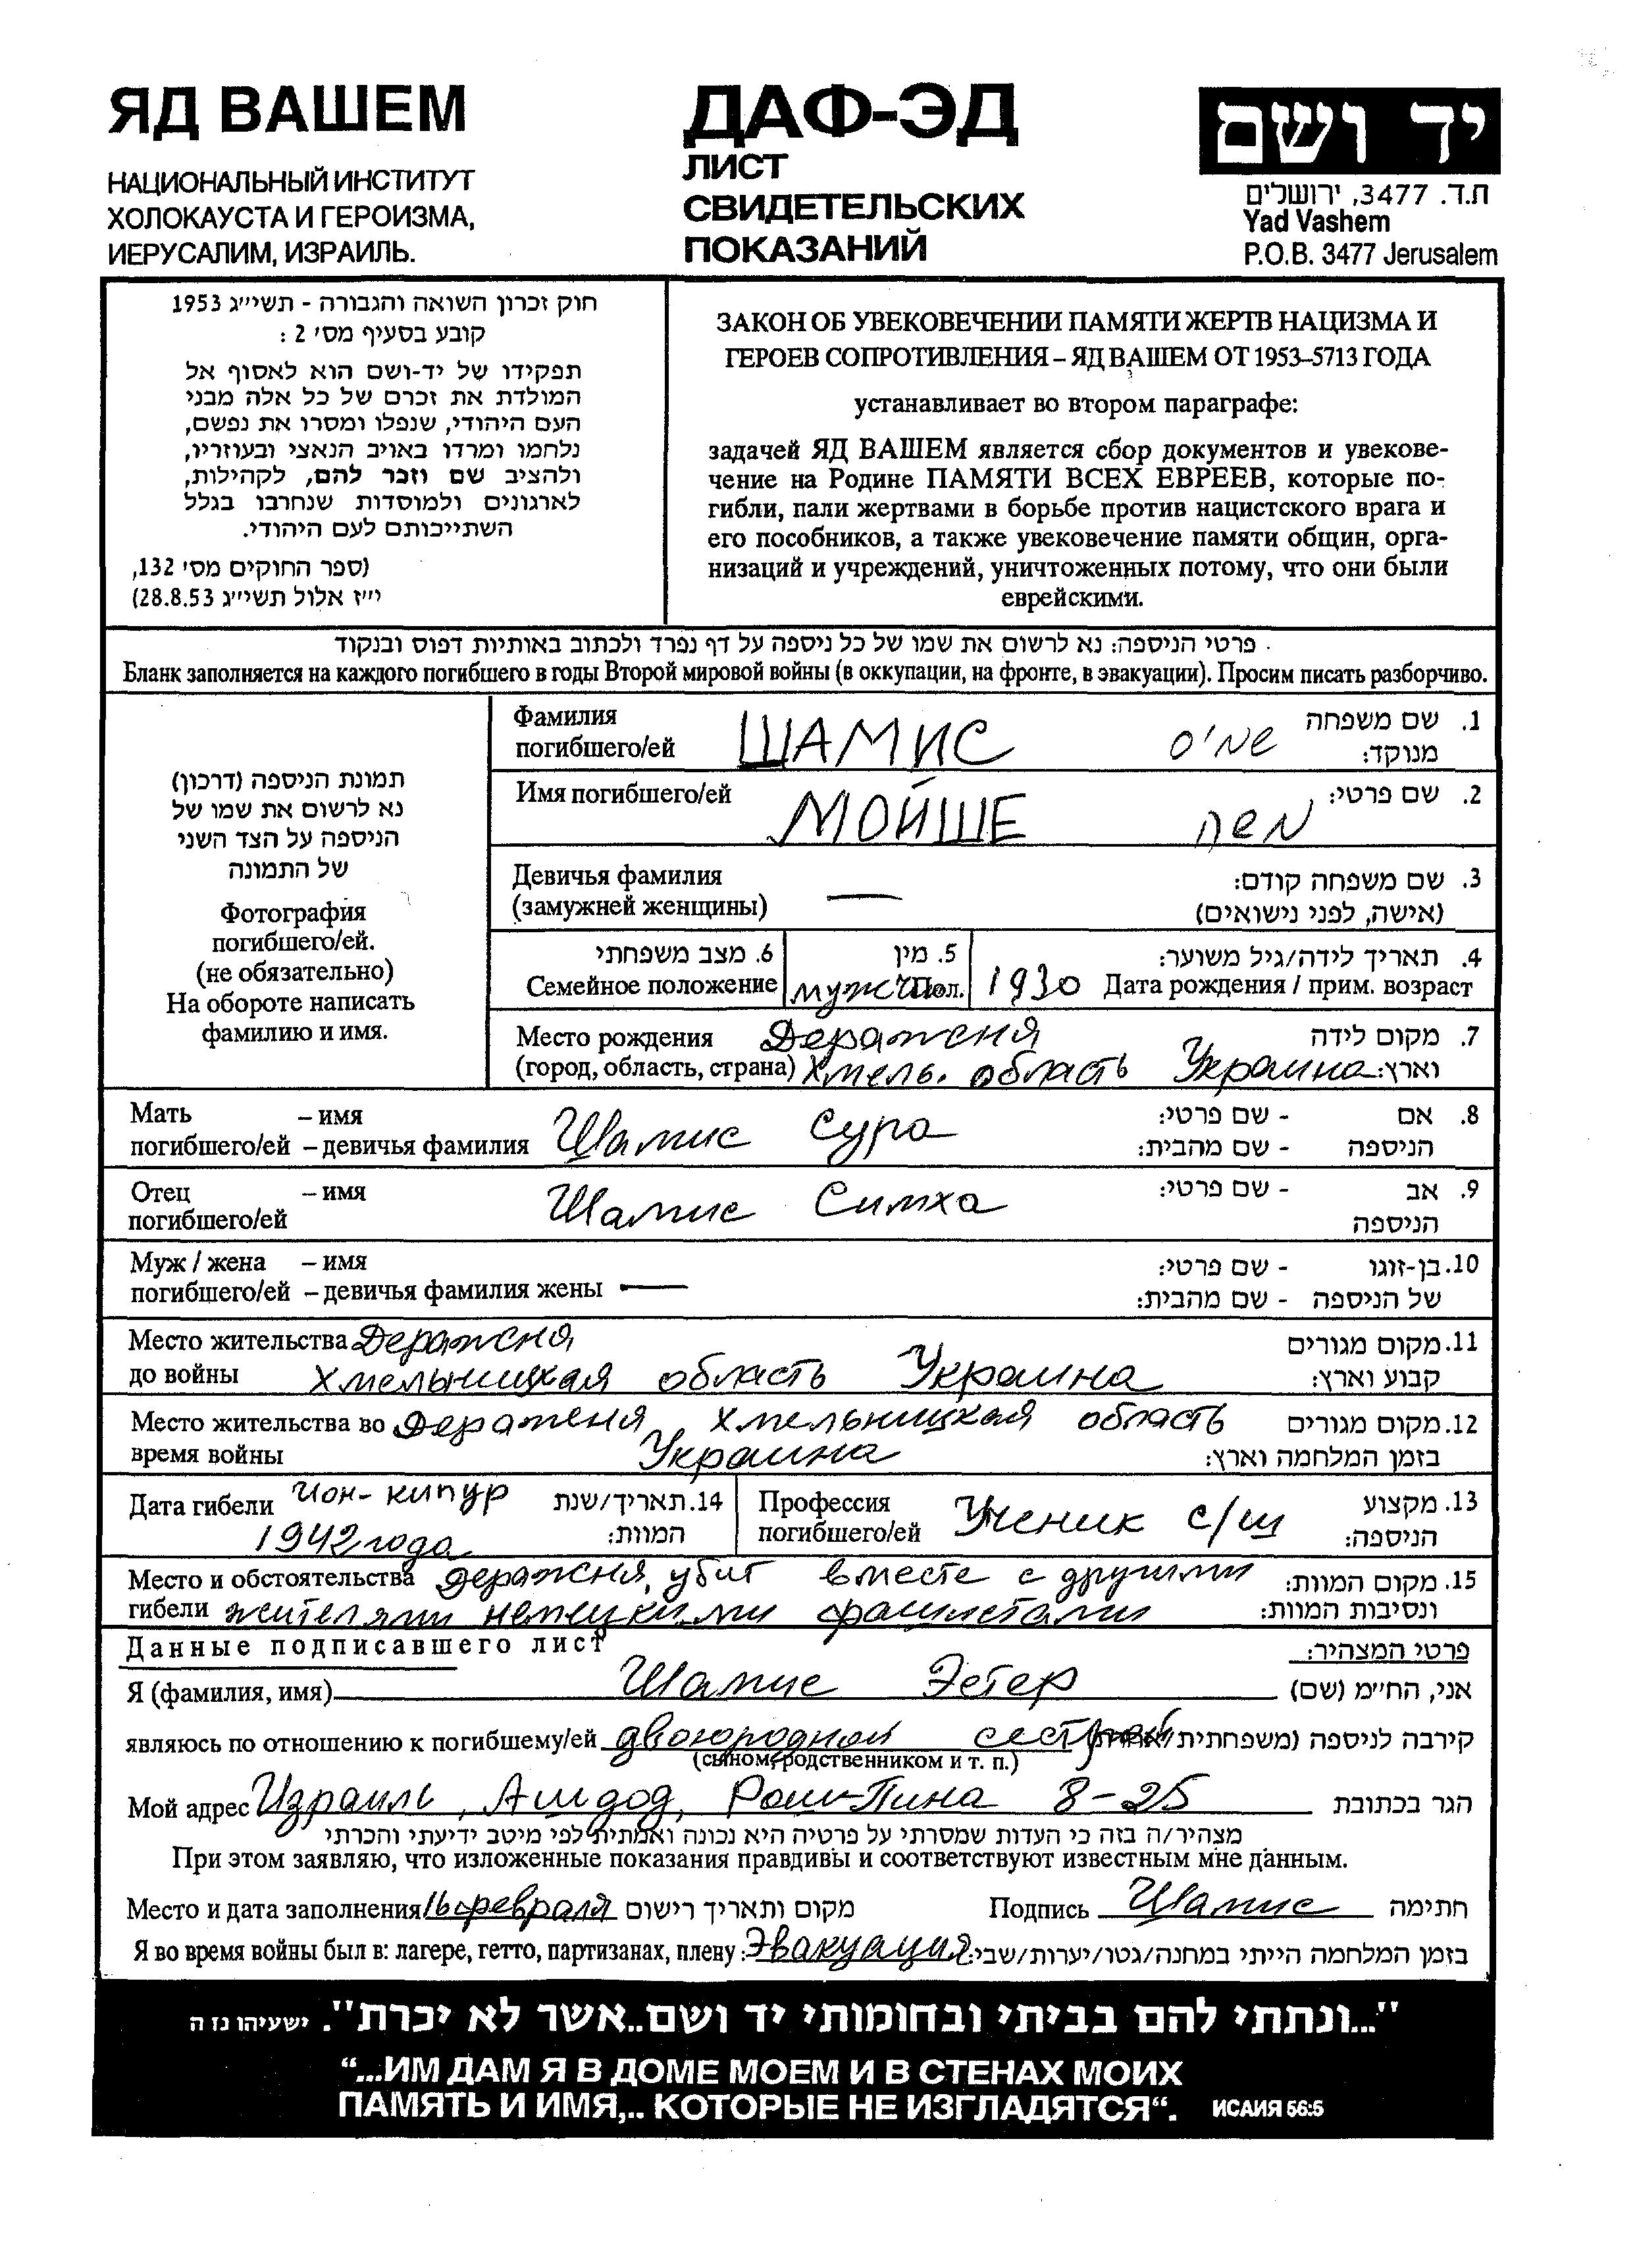 ЯД ВАШЕМ
НАЦИОНАЛЬНЫЙ ИНСТИТУТ
ХОЛОКАУСТА И ГЕРОИЗМА,
ИЕРУСАЛИМ, ИЗРАИЛЬ.
ДАФ-ЭД
ЛИСТ
СВИДЕТЕЛЬСКИХ
ПОКАЗАНИЙ
יד ושם
ת.ד. 3477, ירושלים
Yad Vashem
P.O.B. 3477 Jerusalem
חוק זכרון השואה והגבורה - תשי״ג 1953
קובע בסעיף מס׳ 2 :
תפקידו של יד-ושם הוא לאסוף אל
המולדת את זכרם של כל אלה מבני
העם היהודי, שנפלו ומסרו את נפשם,
נלחמו ומרדו באויב הנאצי ובעוזריו,
ולהציב שם וזכר להם, לקהילות,
לארגונים ולמוסדות שנחרבו בגלל
השתייכותם לעם היהודי.
(ספר החוקים מס׳ 132,
י״ז אלול תשי״ג 28.8.53)
ЗАКОН ОБ УВЕКОВЕЧЕНИИ ПАМЯТИ ЖЕРТВ НАЦИЗМА И
ГЕРОЕВ СОПРОТИВЛЕНИЯ – ЯД ВАШЕМ ОТ 1953–5713 ГОДА
устанавливает во втором параграфе:
задачей ЯД ВАШЕМ является сбор документов и увекове-
чение на Родине ПАМЯТИ ВСЕХ ЕВРЕЕВ, которые по-
гибли, пали жертвами в борьбе против нацистского врага и
его пособников, а также увековечение памяти общин, орга-
низаций и учреждений, уничтоженных потому, что они были
еврейскими.
פרטי הניספה: נא לרשום את שמו של כל ניספה על דף נפרד ולכתוב באותיות דפוס ובנקוד
Бланк заполняется на каждого погибшего в годы Второй мировой войны (в оккупации, на фронте, в эвакуации). Просим писать разборчиво.
תמונת הניספה (דרכון)
נא לרשום את שמו של
הניספה על הצד השני
של התמונה
Фотография
погибшего/ей.
(не обязательно)
На обороте написать
фамилию и имя.
Фамилия ШАМИС שמיס 1. שם משפחה
погибшего/ей מנוקד:
Имя погибшего/ей МОЙШЕ משה 2. שם פרטי:
Девичья фамилия — 3. שם משפחה קודם:
(замужней женщины) (אישה, לפני נישואים)
6. מצב משפחתי 5. מין 4. תאריך לידה/גיל משוער:
Семейное положение мужч Пол. 1930 Дата рождения / прим. возраст
Место рождения Деражня 7. מקום לידה
(город, область, страна) Хмель. область Украина וארץ:
Мать – имя 8. אם - שם פרטי:
погибшего/ей – девичья фамилия Шамис Сура הניספה - שם מהבית:
Отец – имя Шамис Симха 9. אב - שם פרטי:
погибшего/ей הניספה
Муж / жена – имя 10. בן-זוגו - שם פרטי:
погибшего/ей – девичья фамилия жены — של הניספה - שם מהבית:
Место жительства Деражня 11. מקום מגורים
до войны Хмельницкая область Украина קבוע וארץ:
Место жительства во Деражня Хмельницкая область 12. מקום מגורים
время войны Украина בזמן המלחמה וארץ:
Дата гибели Ион-кипур 14. תאריך/שנת
1942 года המוות:
Профессия Ученик с/ш 13. מקצוע
погибшего/ей הניספה:
Место и обстоятельства Деражня, убит вместе с другими 15. מקום המוות:
гибели жителями немецкими фашистами ונסיבות המוות:
Данные подписавшего лист פרטי המצהיר:
Я (фамилия, имя) Шамис Эстер אני, החי״מ (שם)
являюсь по отношению к погибшему/ей двоюродной сестрой קירבה לניספה (משפחתית
(сыном, родственником и т. п.)
Мой адрес Израиль, Ашдод, Рош-Пина 8-25 הגר בכתובת
מצהיר/ה בזה כי העדות שמסרתי על פרטיה היא נכונה ואמתית לפי מיטב ידיעתי והכרתי
При этом заявляю, что изложенные показания правдивы и соответствуют известным мне данным.
Место и дата заполнения 16 февраля מקום ותאריך רישום Подпись Шамис חתימה
Я во время войны был в: лагере, гетто, партизанах, плену: Эвакуация בזמן המלחמה הייתי במחנה/גטו/יערות/שבי:
"...ונתתי להם בביתי ובחומותי יד ושם..אשר לא יכרת". ישעיהו נז ה
“...ИМ ДАМ Я В ДОМЕ МОЕМ И В СТЕНАХ МОИХ
ПАМЯТЬ И ИМЯ,.. КОТОРЫЕ НЕ ИЗГЛАДЯТСЯ“. ИСАИЯ 56:5